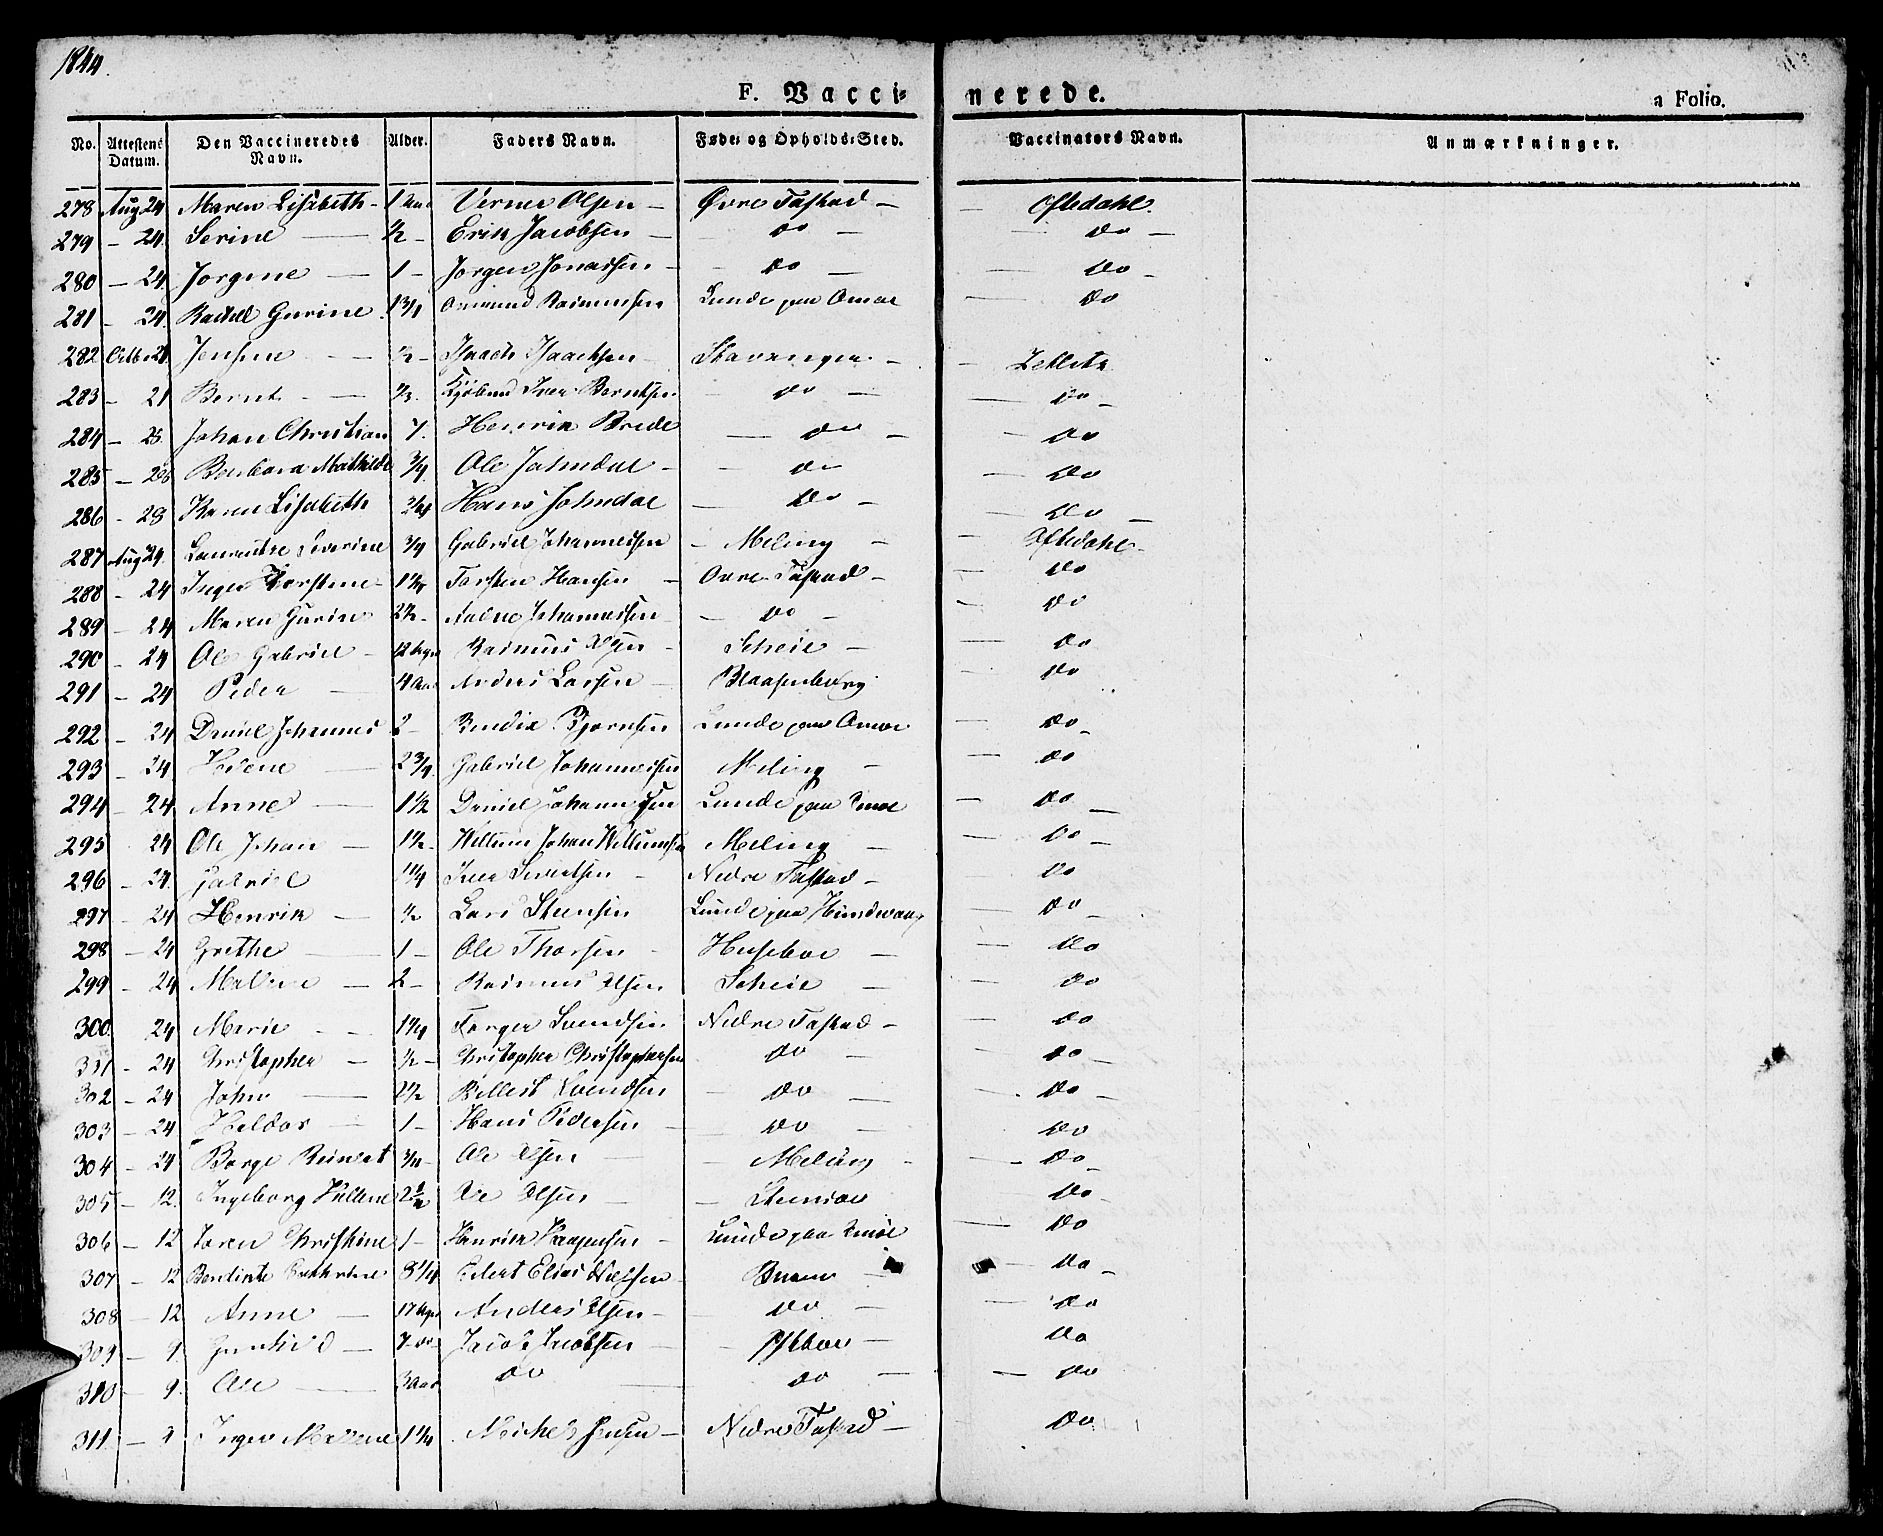 1844.
F. Vaccinerede. a Folio.
No. Attestens Datum. Den Vaccineredes Navn. Alder. Faders Navn. Føde- og Opholds-Sted. Vaccinators Navn. Anmærkninger.
278 Aug 24 Maren Lisabeth - 1 Aar Verner Olsen - Øvre Tasted - Oftedahl.
279 - 24. Serine - 1/2 - Erik Jacobsen - do - do -
280 - 24. Jorgine - 1 - Jorgen Jonassen - do - do -
281 - 24. Rachel Gurine 1 3/4 Rasmussen Lunde paa Amøe do
282 21 Jensine - 1/2 - Isaach Isaachsen - Stavanger - Zetlitz
283 - 21 Bernt - 1/3 - Kjøbmd Iver Berntsen do - do -
284 - 23. Johan Christian 7. Henrik Brede - do - do
285 - 28 Barbara Mathilde 3/4 Ole Johndal - do do
286 - 28 Karen Lisabeth 3/4 Hans Johndal - do - do -
287 Aug 24. Severine 3/4 Gabriel Johannesen - Meling - Oftedahl -
288 - 24 Inger Torstine - 1 1/2 Torsten Hansen - Ovre Tasted - do
289 - 24 Maren Gurine 2 1/2 - Johannessen - do - do
290 - 24 Ole Gabriel - 12 Uger Rasmus Olsen - Scheie - do
291 - 24 Peder - 4 Aar Anders Larsen - Blaasenborg do
292 - 24 Daniel Johannes 2 - Bendix Bjornsen Lunde paa Amøe do -
293 - 24 - 2 3/4 Gabriel Johannessen Meling - do
294 - 24 Anne - 1 1/2 Daniel Johannesen Lunde paa Amøe - do -
295 24 Ole Johan - 1 1/2 - Willum Johan Willumsen Meling - do -
296 - 24. Gabriel 1 1/4 Iver Sivertsen - Nedre Tasted - do
297 - 24 Henrik - 1/2 Lars Steensen Lunde paa Hundvaag - do -
298 - 24 Grethe - 1 - Ole Thorsen - Husebøe - do
299 - 24 Malene - 2 - Rasmus Olsen Scheie - do
300. 24 Marie - 1 1/4 Torger Svendsen Nedre Tasted - do
301 - 24 Christopher - 1/2 - Christopher Christophersen do - do -
302 - 24 John - 2 1/2 Svendsen do - do -
303 - 24 Haldor - 1 - Hans Pedersen - do - do
304 - 24 Børge Reinert 3/4 - Ole Olsen - Meling - do -
305 - 12. Ingeborg Hellene 2 1/2 Ole Olsen - do -
306 - 12 Karen Christine 1 - Henrik Haagensen - Lunde paa Amøe - do
307 - 12 Bendicte 3 1/4 Edert Elias Nielsen - Bueøe - do -
308 - 12 Anne - 17 Uger Anders Olsen - do - do
309 - 9. Gunhild - 7 do - Jacob Jacobsen - do
310 - 9. Ole - 3 Aar do - do - do
311. - 9 Inger Mallene 1 1/4 Michel Jensen - Nedre Tasted - do